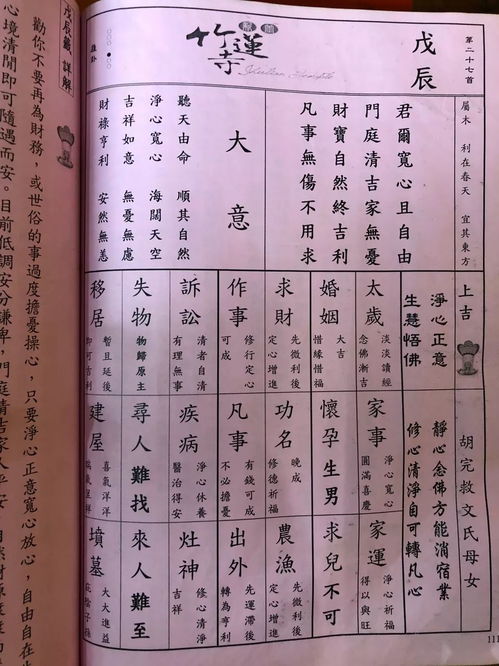 第二十七首
戊辰
屬木 利在春天 宜其東方
上吉
胡完救文氏母女
君爾寬心且自由
門庭清吉家無憂
財寶自然終吉利
凡事無傷不用求
大意
聽天由命 順其自然
淨心寬心 海闊天空
吉祥如意 無憂無慮
財祿亨利 安然無恙
淨心正意
生慧悟佛
靜心念佛方能消宿業
修心清淨自可轉凡心
太歲
淡淡讀經
念佛漸吉
婚姻
大吉
惜緣惜福
求財
先微利後
定心增進
作事
修行定心
可成
訴訟
清者自清
有理無事
失物
物歸原主
移居
暫且延後
即可吉利
家事
淨心寬心
圓滿喜慶
懷孕
生男
功名
晚成
修德祈福
凡事
有錢可成
不必擔憂
疾病
淨心休養
醫治得安
尋人
難找
建屋
喜氣洋洋
瑞氣呈祥
家運
淨心祈福
得以興旺
求兒
不可
農漁
先微利後
定心增進
出外
先運滯後
轉為亨利
灶神
修心清淨
吉祥
來人
難至
墳墓
大大進益
竹蓮寺
111
戊辰籤 詳解
勸你不要再為財務，或世俗的事過度擔憂操心，只要淨心正意寬心放心，自由自在
心境清閒即可隨遇而安。目前低調安分謙卑，門庭清吉家人平安